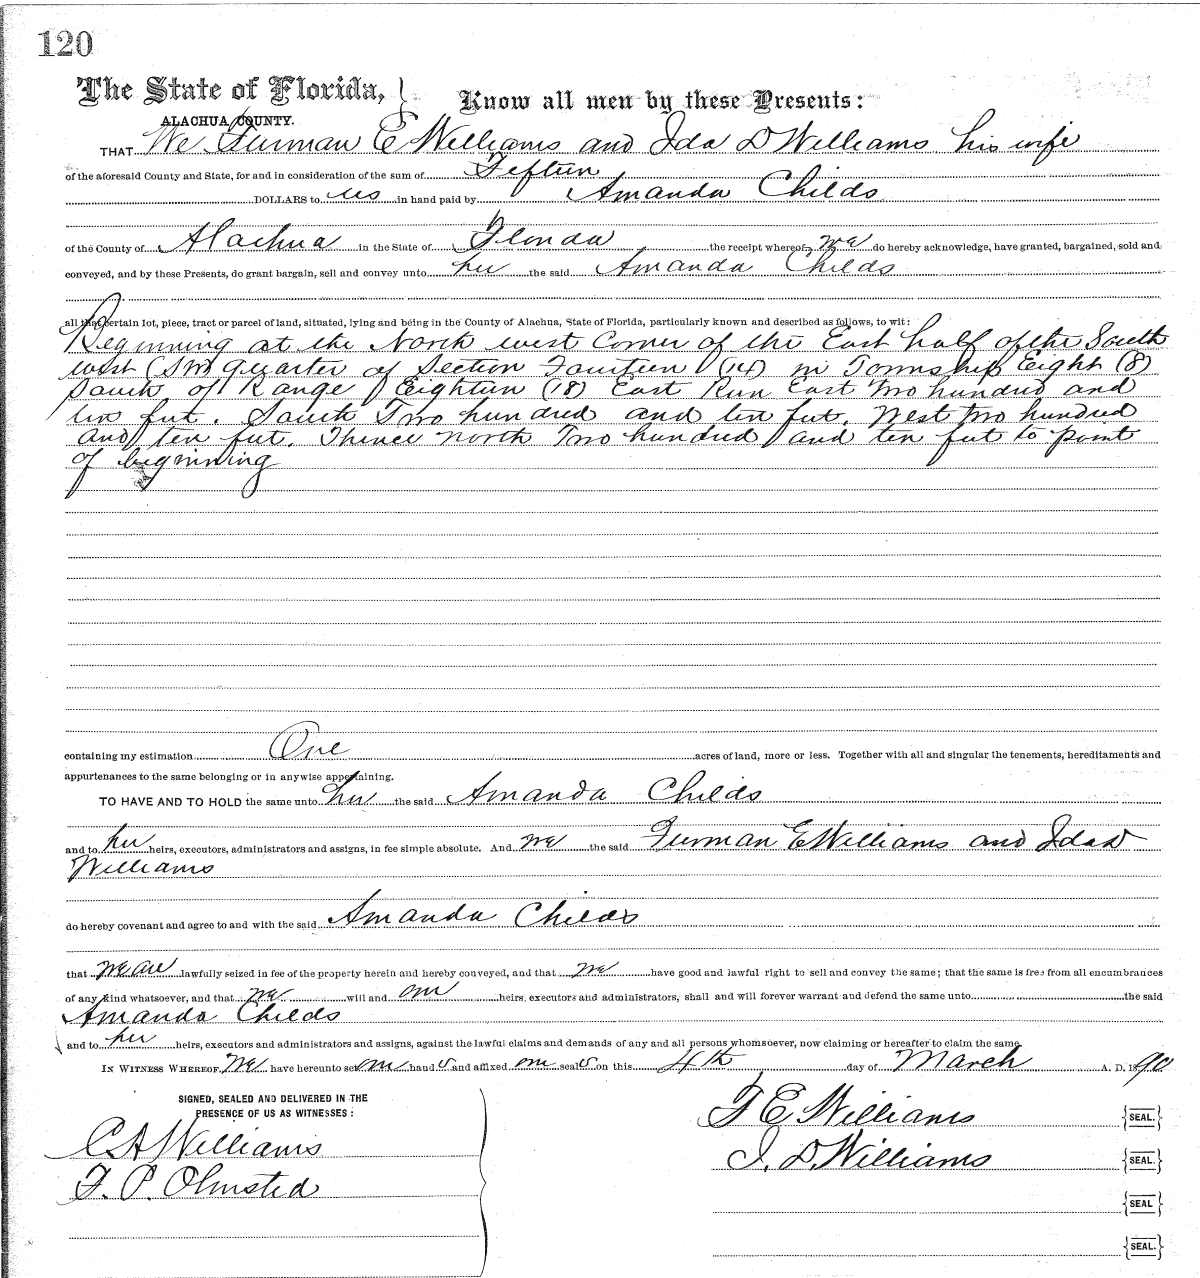 120
The State of Florida, } Know all men by these Presents:
ALACHUA COUNTY.
THAT We Furman E Williams and Ida D Williams his wife
of the aforesaid County and State, for and in consideration of the sum of Fifteen
DOLLARS to us in hand paid by Amanda Childs
of the County of Alachua in the State of Florida the receipt whereof we do hereby acknowledge, have granted, bargained, sold and
conveyed, and by these Presents, do grant bargain, sell and convey unto her the said Amanda Childs
all that certain lot, piece, tract or parcel of land, situated, lying and being in the County of Alachua, State of Florida, particularly known and described as follows, to wit:
Beginning at the North west Corner of the East half of the South
west (SW) quarter of Section Fourteen (14) in Township Eight (8)
South of Range Eighteen (18) East Run East Two hundred and
ten feet. South Two hundred and ten feet. West two hundred
and ten feet. Thence north Two hundred and ten feet to point
of beginning
containing my estimation One acres of land, more or less. Together with all and singular the tenements, hereditaments and
appurtenances to the same belonging or in anywise appertaining.
TO HAVE AND TO HOLD the same unto her the said Amanda Childs
and to her heirs, executors, administrators and assigns, in fee simple absolute. And we the said Furman E Williams and Ida D
Williams
do hereby covenant and agree to and with the said Amanda Childs
that we are lawfully seized in fee of the property herein and hereby conveyed, and that we have good and lawful right to sell and convey the same; that the same is free from all encumbrances
of any kind whatsoever, and that we will and our heirs, executors and administrators, shall and will forever warrant and defend the same unto the said
Amanda Childs
and to her heirs, executors and administrators and assigns, against the lawful claims and demands of any and all persons whomsoever, now claiming or hereafter to claim the same.
IN WITNESS WHEREOF, We have hereunto set our hand s and affixed our seal s on this 4th day of March A. D. 1890
SIGNED, SEALED AND DELIVERED IN THE
PRESENCE OF US AS WITNESSES:
F E Williams {SEAL.}
C A Williams
I. D. Williams {SEAL.}
F. P. Olmsted
{SEAL}
{SEAL.}